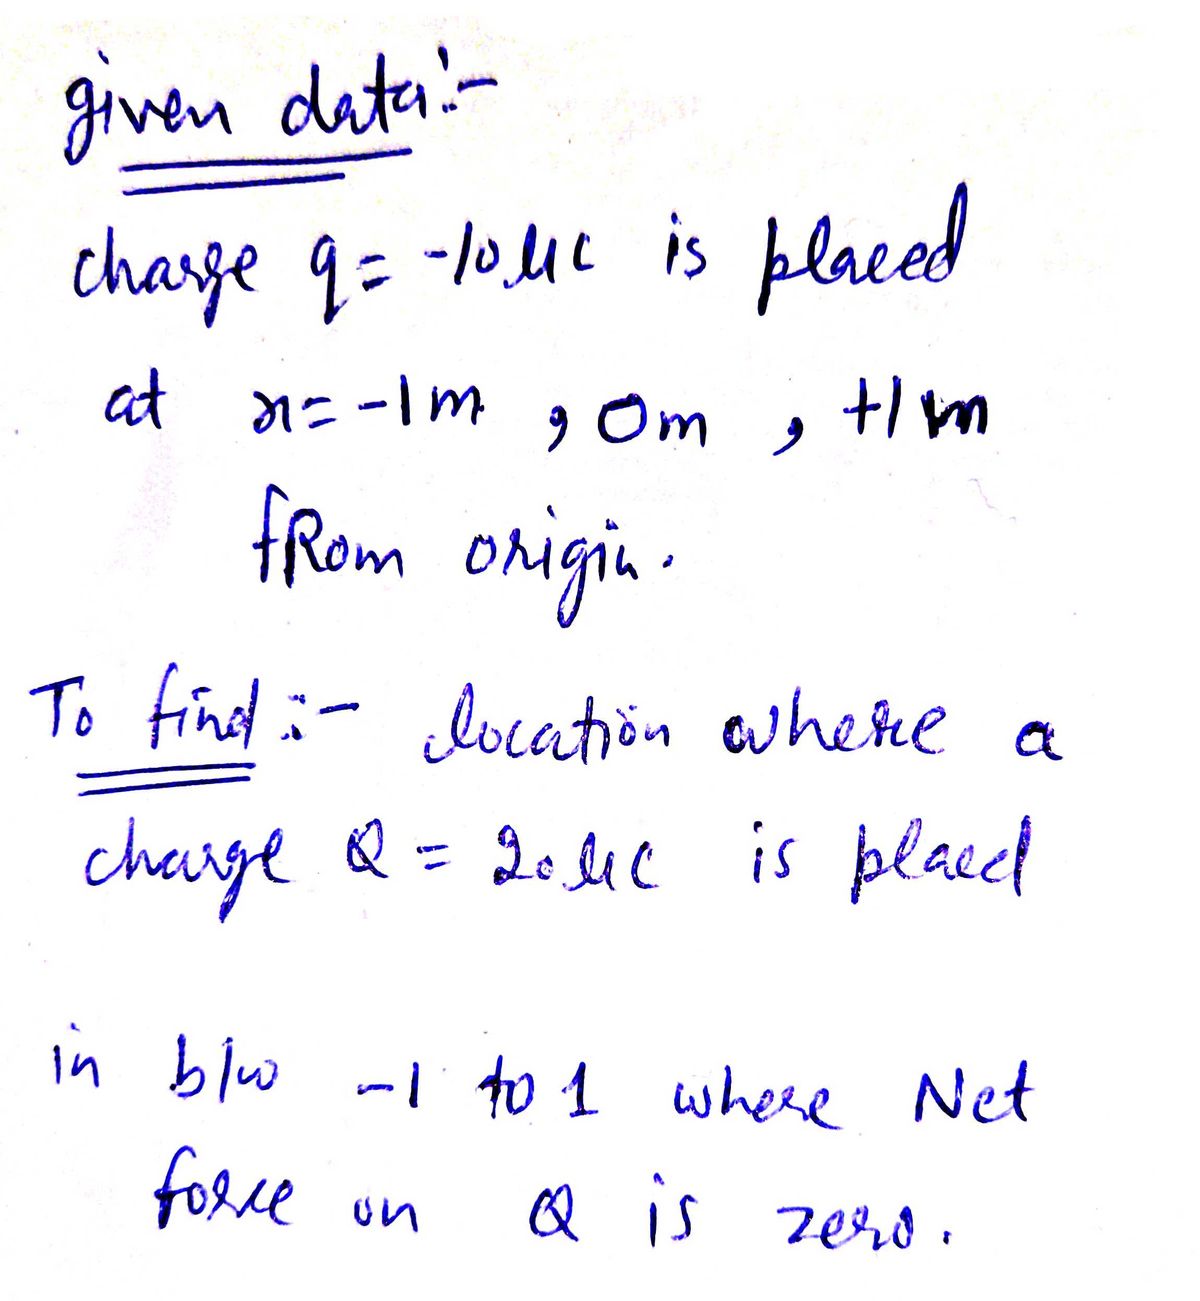 given data:-
charge q = -10 μc is placed
at x = -1m , 0m , +1m
from origin.
To find :- location where a
charge Q = 20 μc is placd
in b/w -1 to 1 where Net
force on Q is zero.